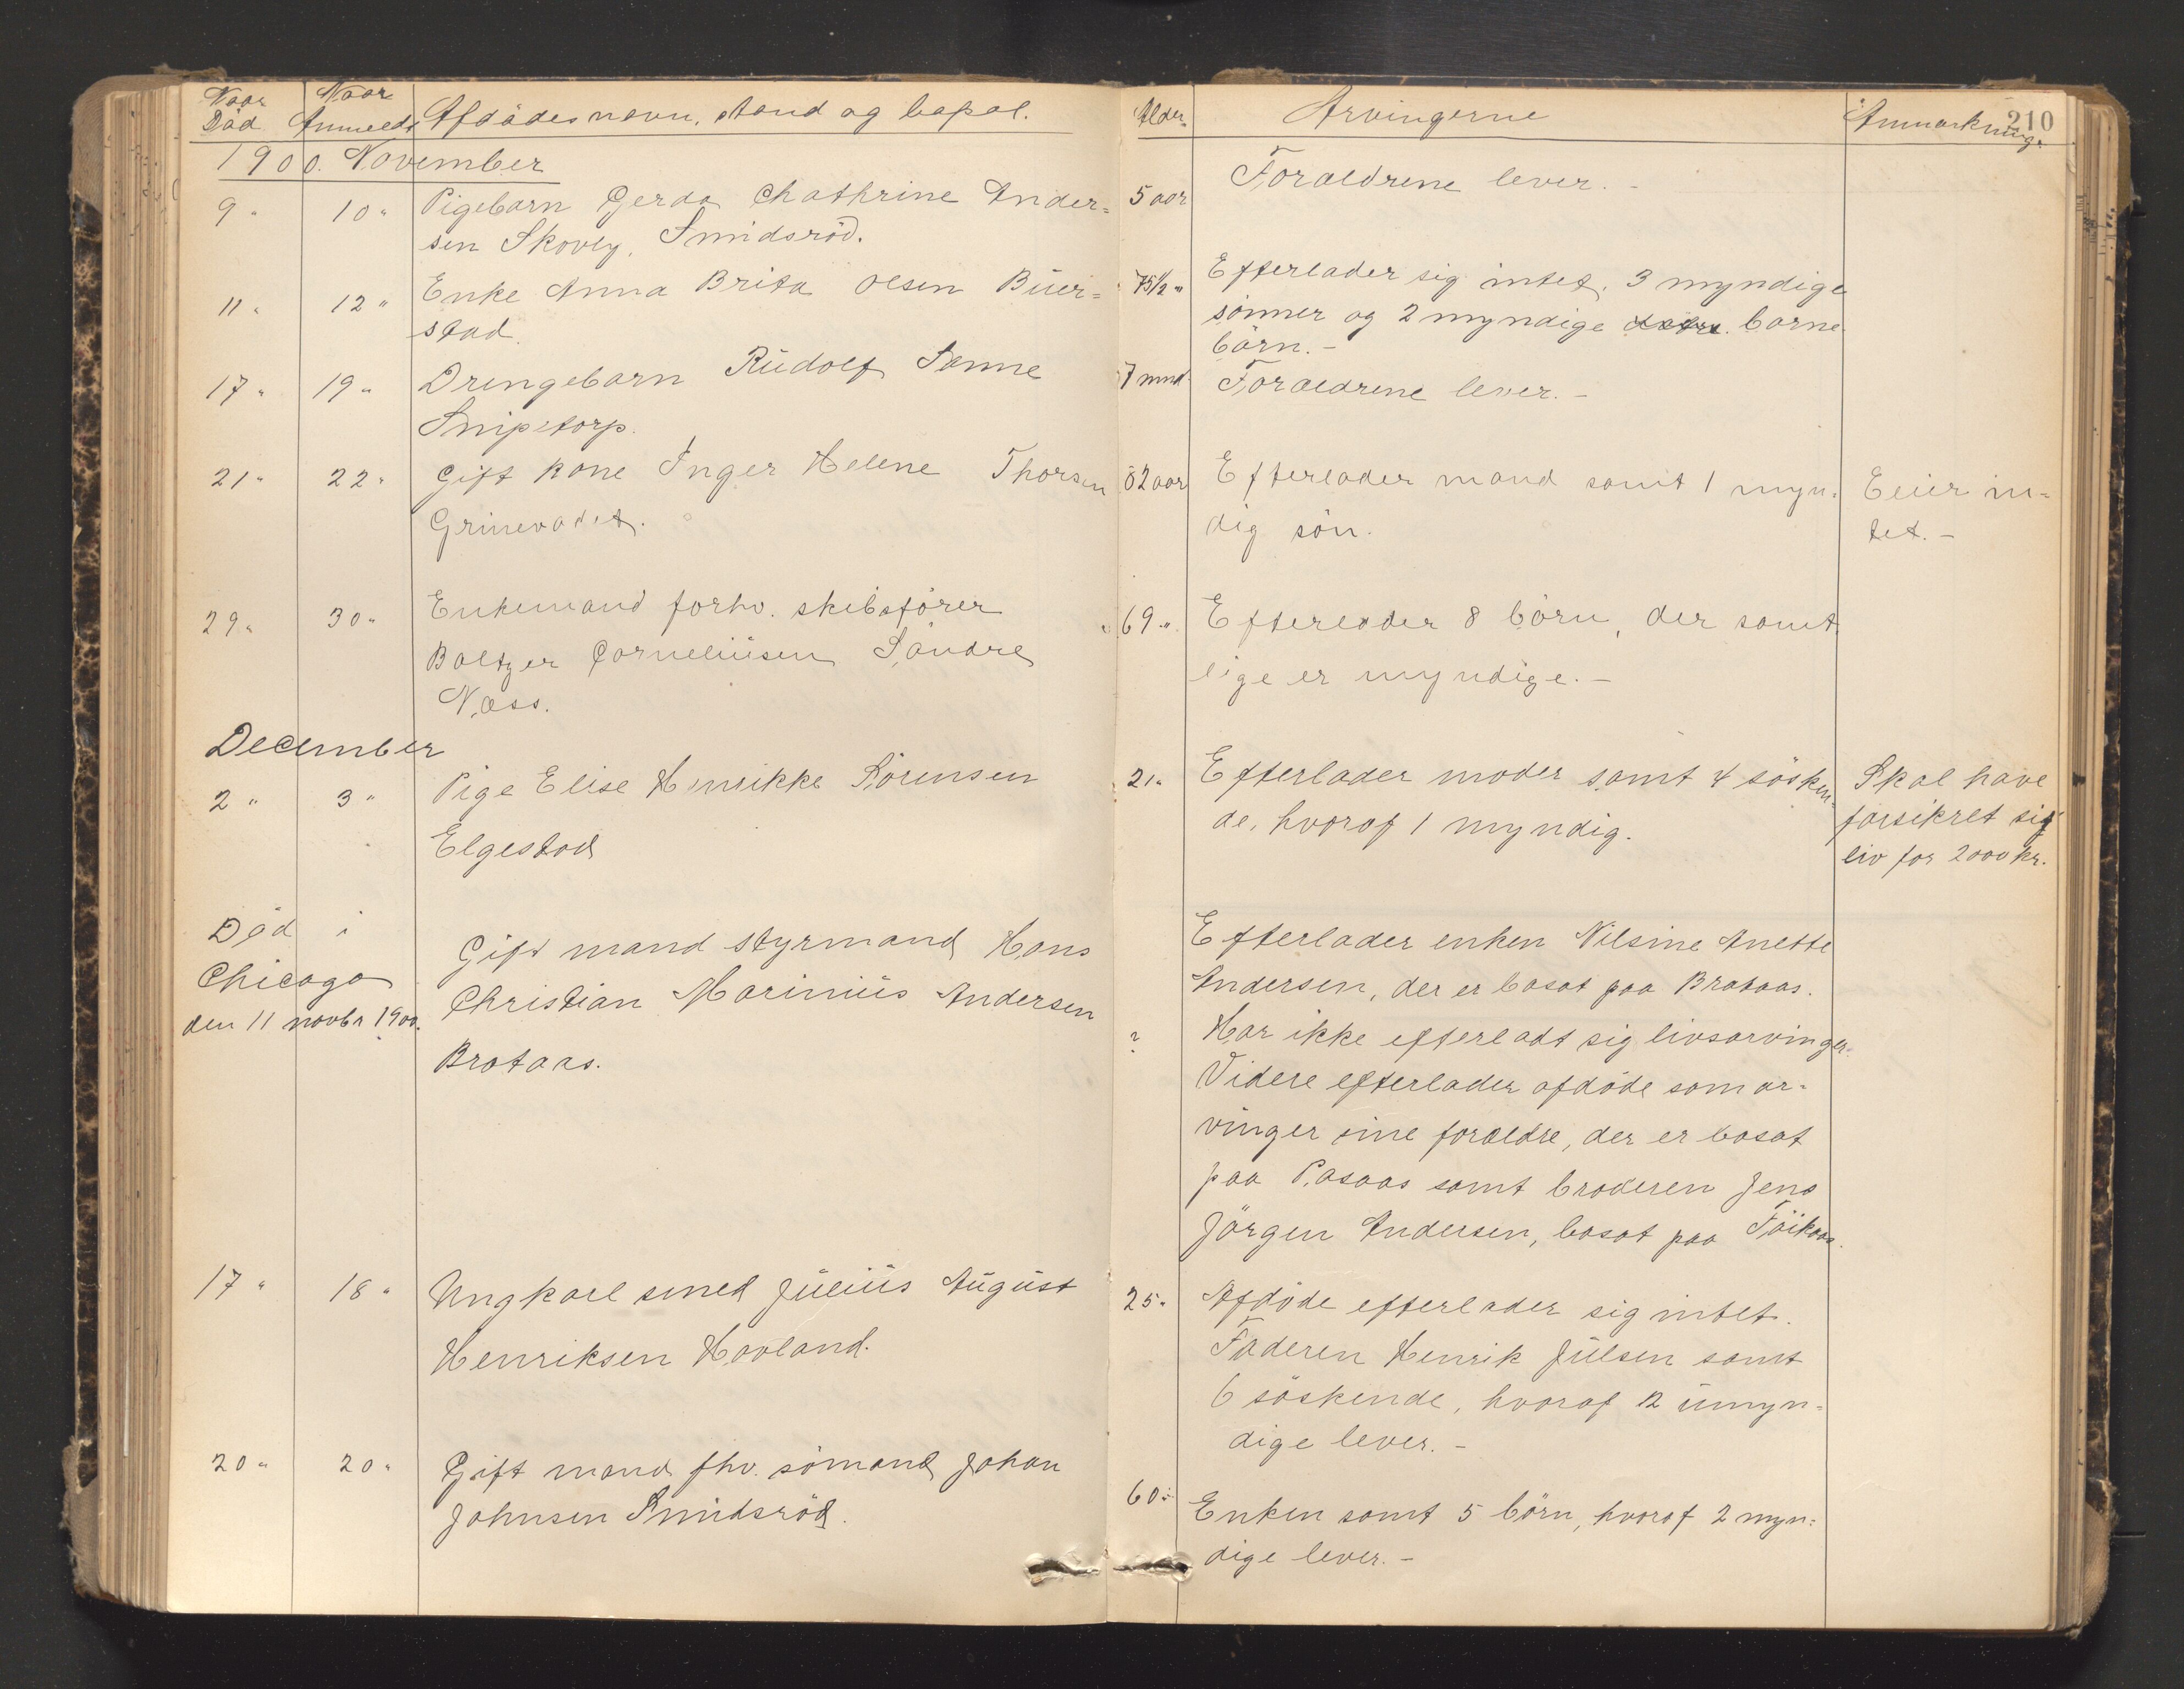 Naar Død
Naar Anmeldt
Afdødes navn, stand og bopæl.
Alder.
Arvingerne
Anmærkning.
210
1900. November
9 " 10 " Pigebarn Gerda Chathrine Ander=
sen Skovly, Smidsrød.
5 aar
Forældrene lever. -
11 " 12 " Enke Anna Brita Olsen Buer=
stad.
75 1/2 "
Efterlader sig intet. 3 myndige
sønner og 2 myndige barne
børn. -
17 " 19 " Drengebarn Rudolf Sanne
Snipetorp.
7 mnd
Forældrene lever. -
21 " 22 " Gift kone Inger Helene Thorsen
Grinevadet.
82 aar
Efterlader mand samt 1 myn=
dig søn.
Eeier in=
tet. -
29 " 30 " Enkemand forhv. skibsfører
Baltzer Corneliusen Søndre
Næss.
69 "
Efterlader 8 børn, der samt
lige er myndige. -
December
2 " 3 " Pige Elise Henrikke Sørensen
Elgestad
21 "
Efterlader moder samt 4 søsken=
de, hvoraf 1 myndig.
Skal have
forsikret sig
liv for 2000 kr.
Død i
Chicago
den 11 novbr 1900.
Gift mand styrmand Hans
Christian Marinius Andersen
Brataas.
?
Efterlader enken Nilsine Anette
Andersen, der er bosat paa Brataas.
Har ikke efterladt sig livsarvinger.
Videre efterlader afdøde som ar=
vinger sine forældre, der er bosat
paa Aasaas samt broderen Jens
Jørgen Andersen, bosat paa
17 " 18 " Ungkarl smed Julius August
Henriksen Hovland.
25 "
Afdøde efterlader sig intet.
Faderen Henrik Julsen samt
6 søskende, hvoraf 2 umyn=
dige lever. -
20 " 20 " Gift mand fhv. sømand Johan
Johnsen Smidsrød.
60 "
Enken samt 5 børn, hvoraf 2 myn=
dige lever. -